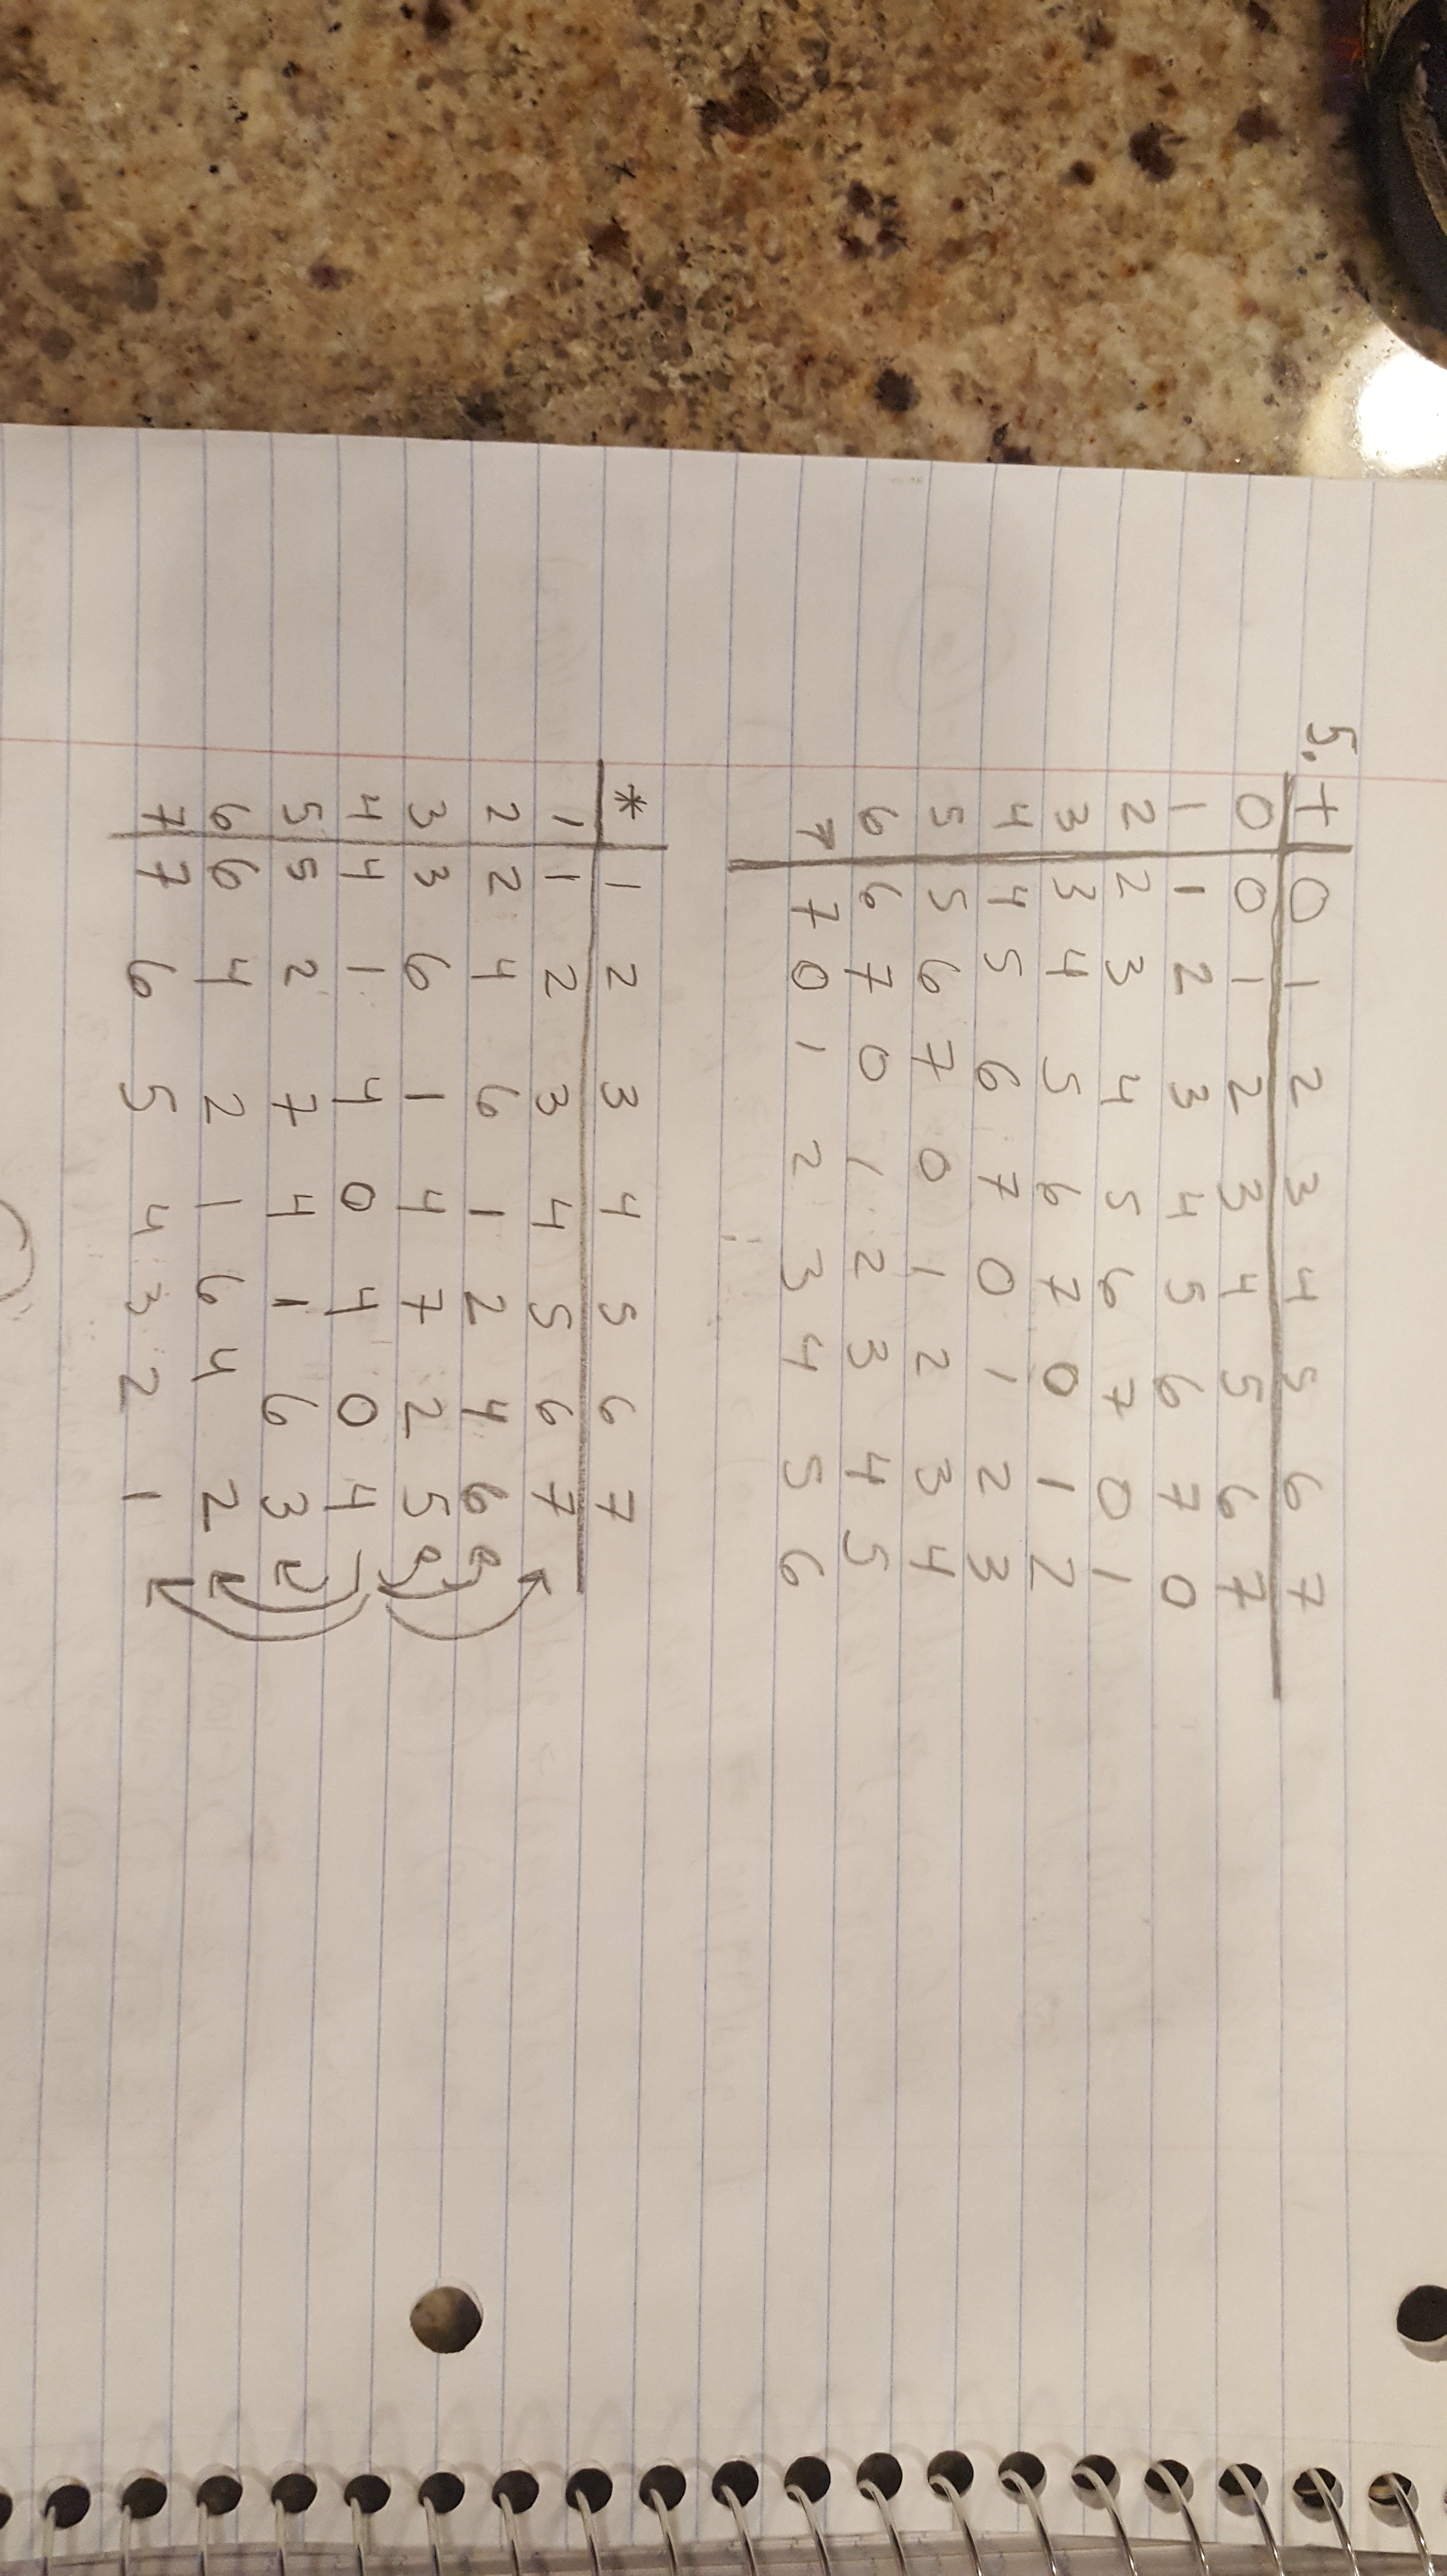 5. + 0 1 2 3 4 5 6 7
0 0 1 2 3 4 5 6 7
1 1 2 3 4 5 6 7 0
2 2 3 4 5 6 7 0 1
3 3 4 5 6 7 0 1 2
4 4 5 6 7 0 1 2 3
5 5 6 7 0 1 2 3 4
6 6 7 0 1 2 3 4 5
7 7 0 1 2 3 4 5 6
* 1 2 3 4 5 6 7
1 1 2 3 4 5 6 7
2 2 4 6 1 2 4 6
3 3 6 1 4 7 2 5
4 4 1 4 0 4 0 4
5 5 2 7 4 1 6 3
6 6 4 2 1 6 4 2
7 7 6 5 4 3 2 1